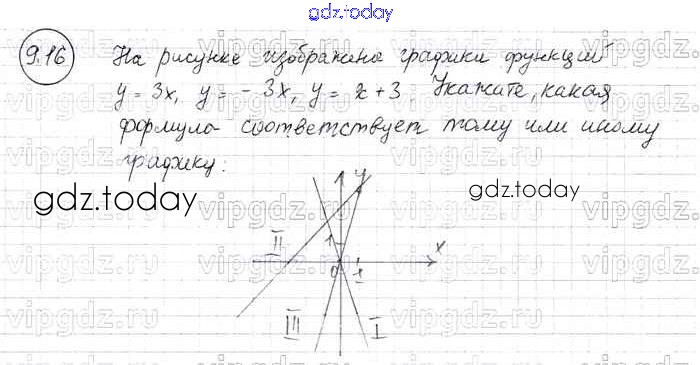 gdz.today
9.16 На рисунке изображены графики функций
y = 3x, y = - 3x, y = x + 3. Укажите, какая
формула соответствует тому или иному
графику:
gdz.today
gdz.today
y
1
x
II
0
1
III
I
vipgdz
vipgdz
vipgdz
vipgdz